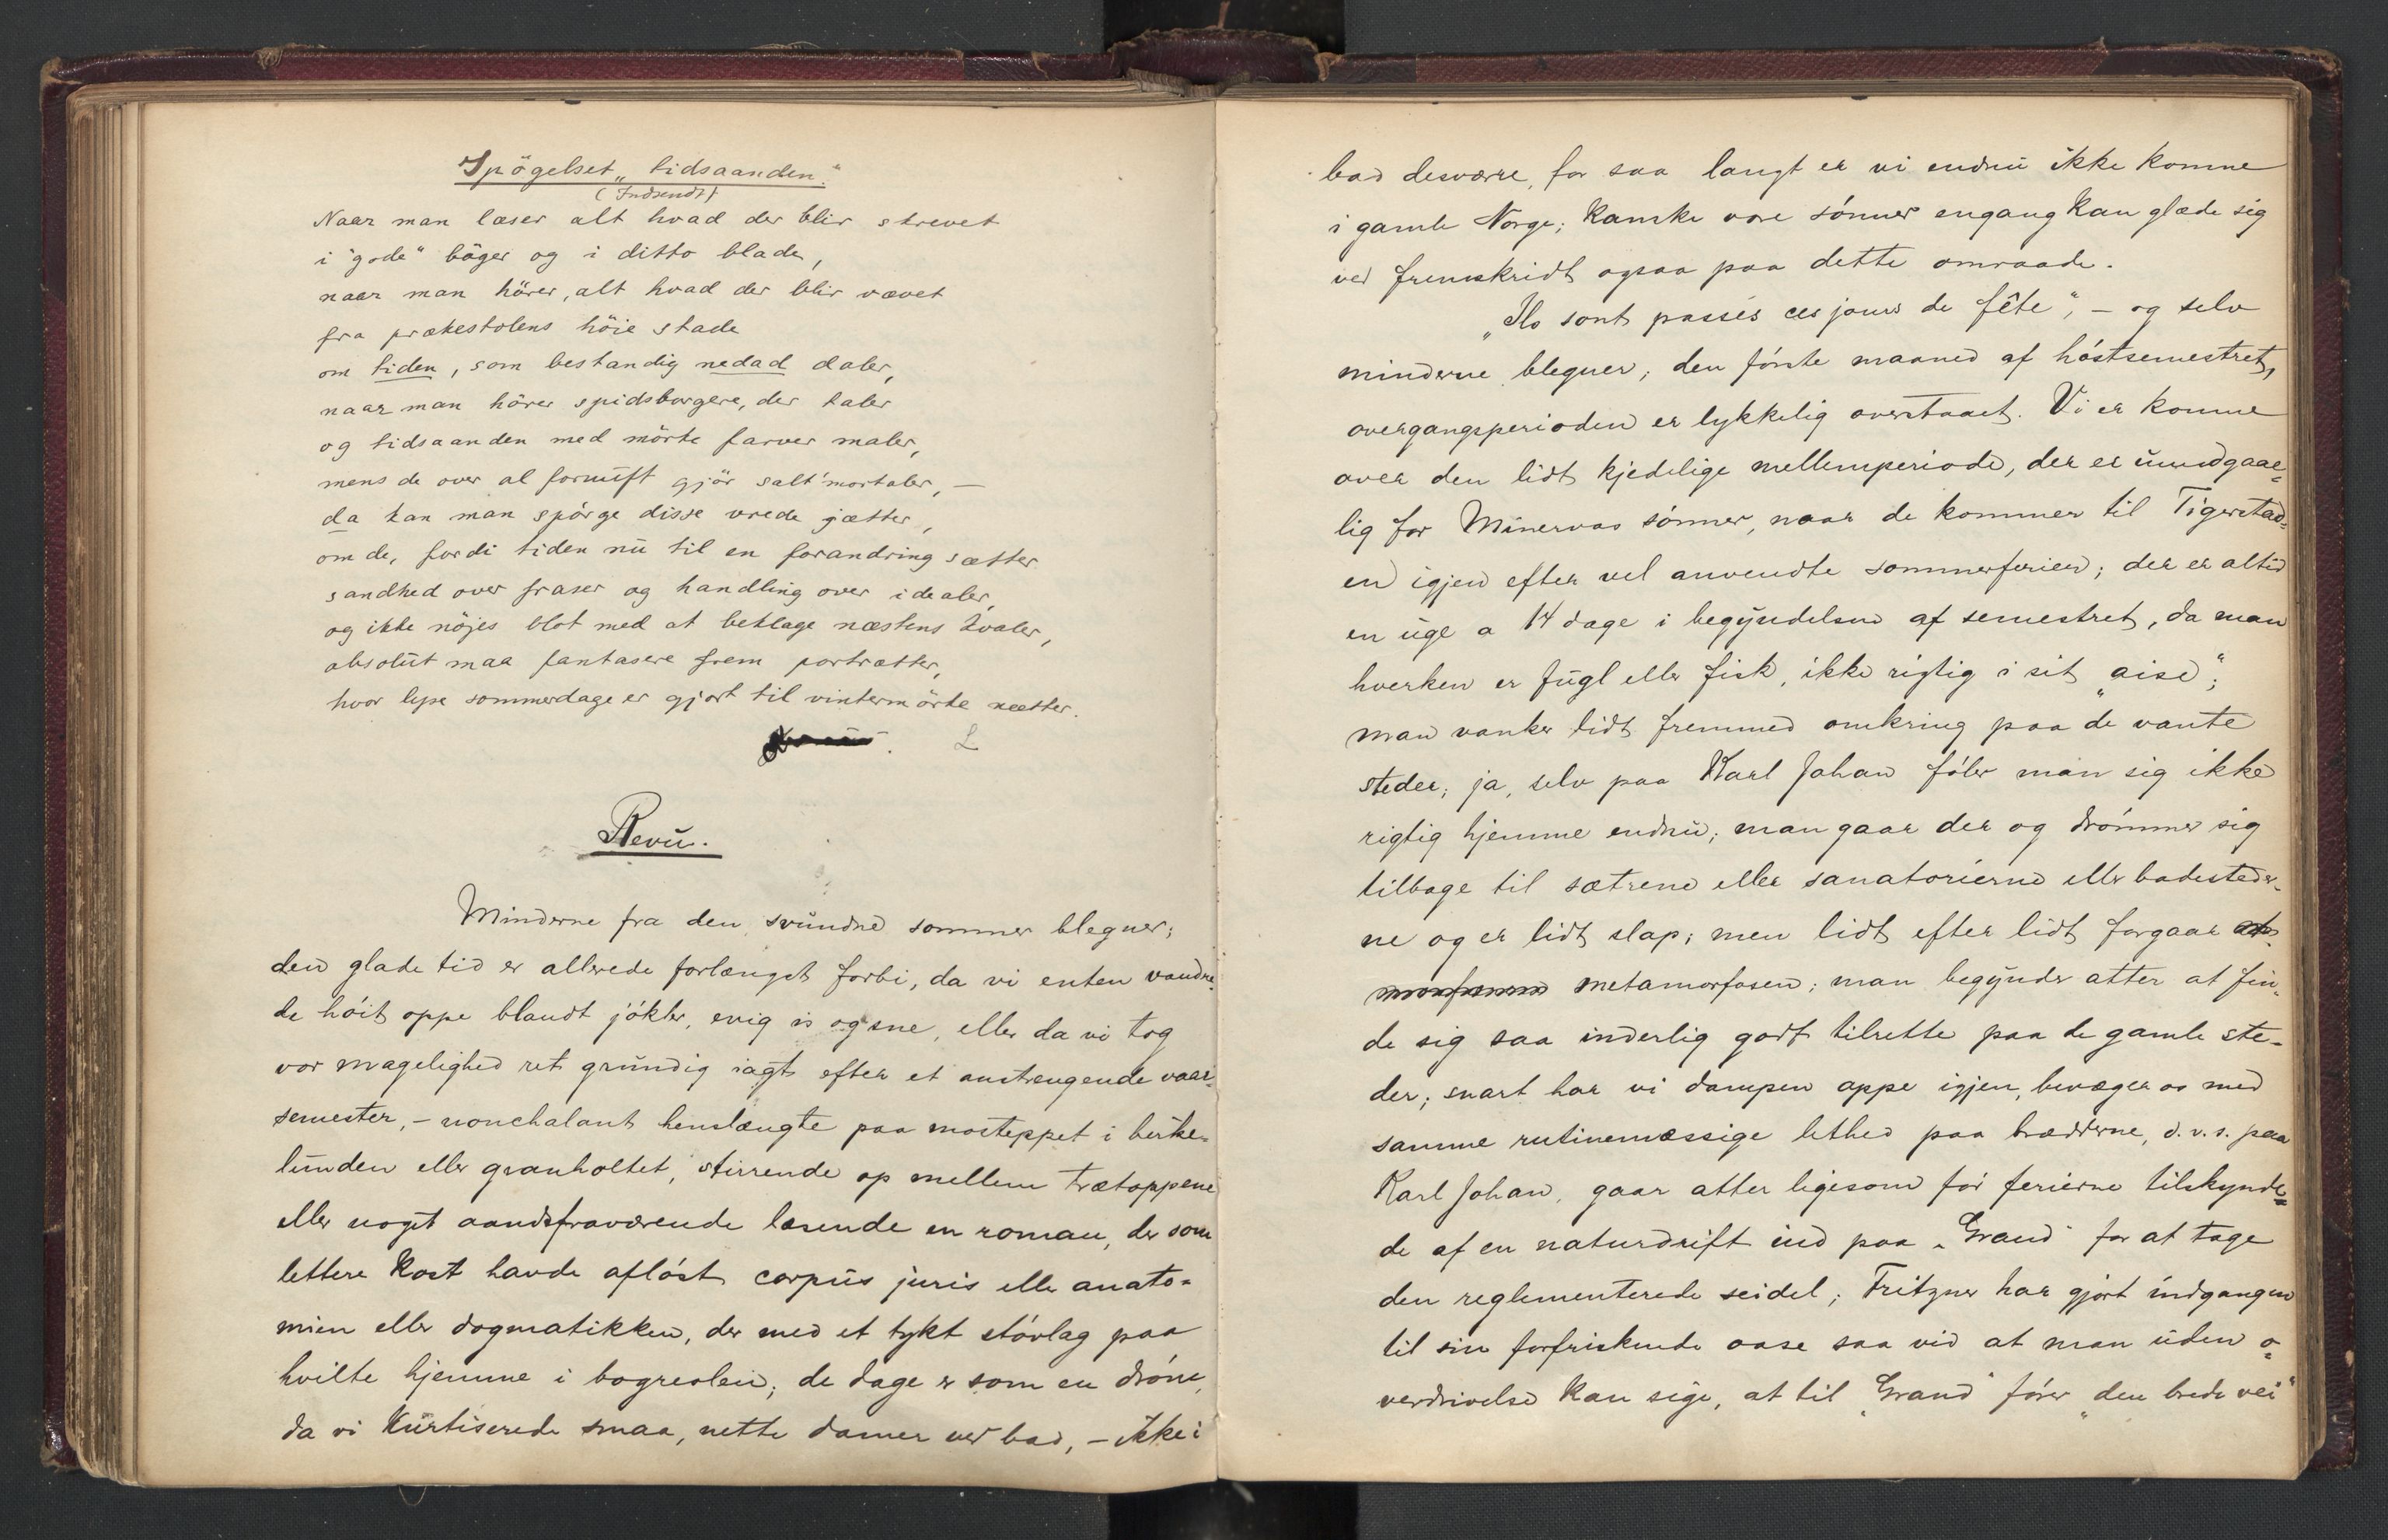 Spögelset „tidsaanden."
(Indsendt)
Naar man læser alt hvad der blir skrevet
i "gode" bøger og i ditto blade,
naar man hörer, alt hvad der blir vævet
fra prækestolens höie stade
om tiden, som bestandig nedad daler,
naar man hörer spidsborgere, der taler
og tidsaanden med mörke farver maler,
mens de over al fornuft gjör salt'mortaler, —
da kan man spörge disse vrede jætter,
om de, fordi tiden nu til en forandring sætter
sandhed over fraser og handling over idealer,
og ikke nöjes blot med at beklage næstens kvaler,
absolut maa fantasere frem portrætter,
hvor lyse sommerdage er gjort til vintermörke nætter.
L
Revu.
Minderne fra den svundne sommer blegner;
den glade tid er allerede forlængst forbi, da vi enten vandre-
de höit oppe blandt jökler, evig is og sne, eller da vi tog
vor magelighed ret grundig iagt efter et anstrengende vaar-
semester, – nonchalant henslængte paa mosteppet i birke-
lunden eller granholtet, stirrende op mellem trætoppene
eller noget aandsfraværende læsende en roman, der som
lettere kost havde aflöst corpus juris eller anato-
mien eller dogmatikken, der med et tykt stövlag paa
hvilte hjemme i bogreolen; de dage er som en dröm,
da vi kurtiserede smaa, nette damer ved bad, – ikke i
bad desværre, for saa langt er vi endnu ikke komne
i gamle Norge; kanske vore sönner engang kan glæde sig
ved fremskridt ogsaa paa dette omraade.
„Ils sont passés ces jours de fête", – og selv
minderne blegner; den förste maaned af höstsemestret,
overgangsperioden er lykkelig overstaaet. Vi er komne
over den lidt kjedelige mellemperiode, der er uundgaae-
lig for Minervas sönner, naar de kommer til Tigerstad-
en igjen efter vel anvendte sommerferier; der er altid
en uge a 14 dage i begyndelsen af semestret, da man
hverken er fugl eller fisk, ikke rigtig i sit „aise";
man vanker lidt fremmed omkring paa de vante
steder; ja, selv paa Karl Johan föler man sig ikke
rigtig hjemme endnu; man gaar der og drömmer sig
tilbage til sætrene eller sanatorierne eller badesteder-
ne og er lidt slap; men lidt efter lidt forgaar
metamorfosen; man begynder atter at fin-
de sig saa inderlig godt tilrette paa de gamle ste-
der; snart har vi dampen oppe igjen, bevæger os med
samme rutinemæssige lethed paa brædderne, d.v.s. paa
Karl Johan, gaar atter ligesom för ferierne tilskynde-
de af en naturdrift ind paa „Grand" for at tage
den reglementerede seidel; Fritzner har gjort indgangen
til sin forfriskende oase saa vid at man uden o-
verdrivelse kan sige, at til „Grand" förer „den brede vei"